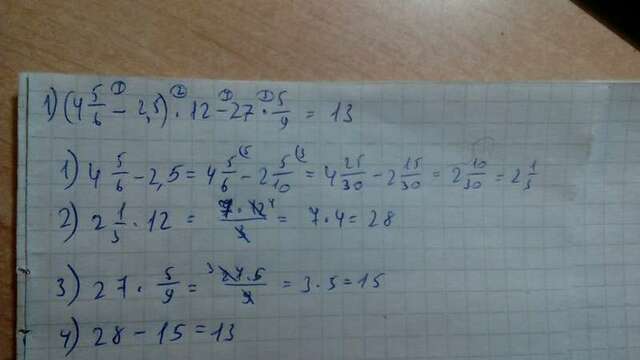 1) (4 5/6 - 2,5) · 12 - 27 · 5/9 = 13
1) 4 5/6 - 2,5 = 4 5/6 - 2 5/10 = 4 25/30 - 2 15/30 = 2 10/30 = 2 1/3
2) 2 1/3 · 12 = 7·12/3 = 7·4 = 28
3) 27 · 5/9 = 27·5/9 = 3·5 = 15
4) 28 - 15 = 13